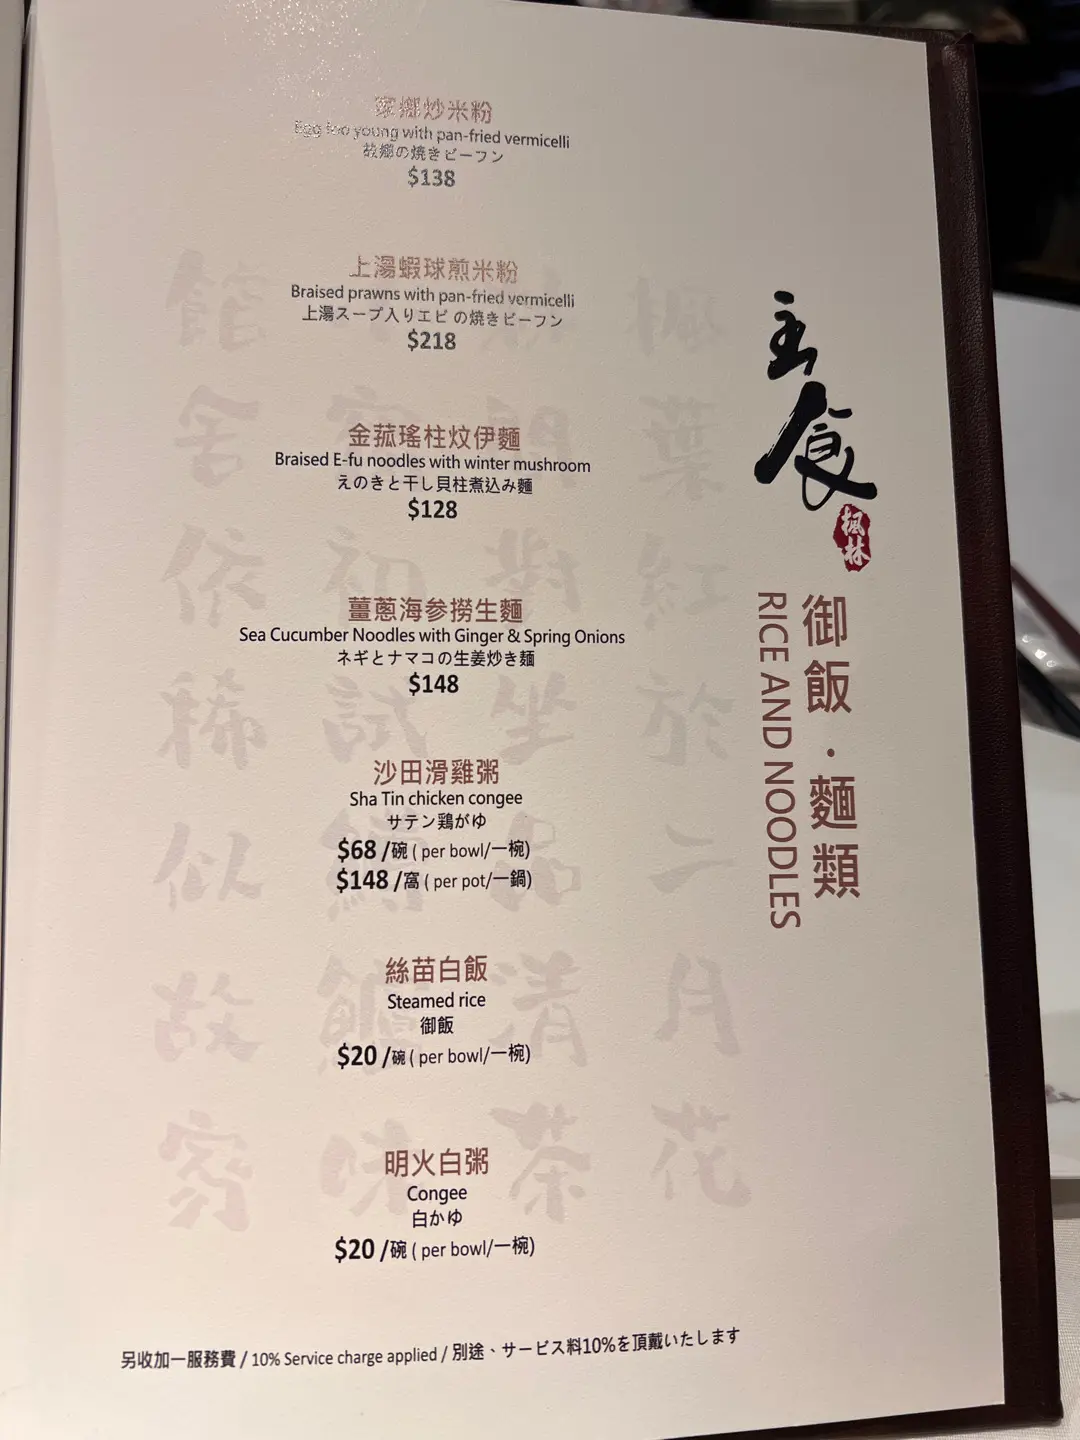 家鄉炒米粉
Egg foo young with pan-fried vermicelli
故郷の焼きビーフン
$138
上湯蝦球煎米粉
Braised prawns with pan-fried vermicelli
上湯スープ入りエビ の焼きビーフン
$218
金菰瑤柱炆伊麵
Braised E-fu noodles with winter mushroom
えのきと干し貝柱煮込み麵
$128
薑蔥海參撈生麵
Sea Cucumber Noodles with Ginger & Spring Onions
ネギとナマコの生姜炒き麵
$148
沙田滑雞粥
Sha Tin chicken congee
サテン鶏がゆ
$68 /碗 ( per bowl/一椀)
$148 /窩 ( per pot/一鍋)
絲苗白飯
Steamed rice
御飯
$20 /碗 ( per bowl/一椀)
明火白粥
Congee
白かゆ
$20 /碗 ( per bowl/一椀)
另收加一服務費 / 10% Service charge applied / 別途、サービス料10%を頂戴いたします
主食
楓林
御飯・麵類
RICE AND NOODLES
楓葉紅於二月花
對坐品清茶
初試
鱸味
館舍依稀似故家